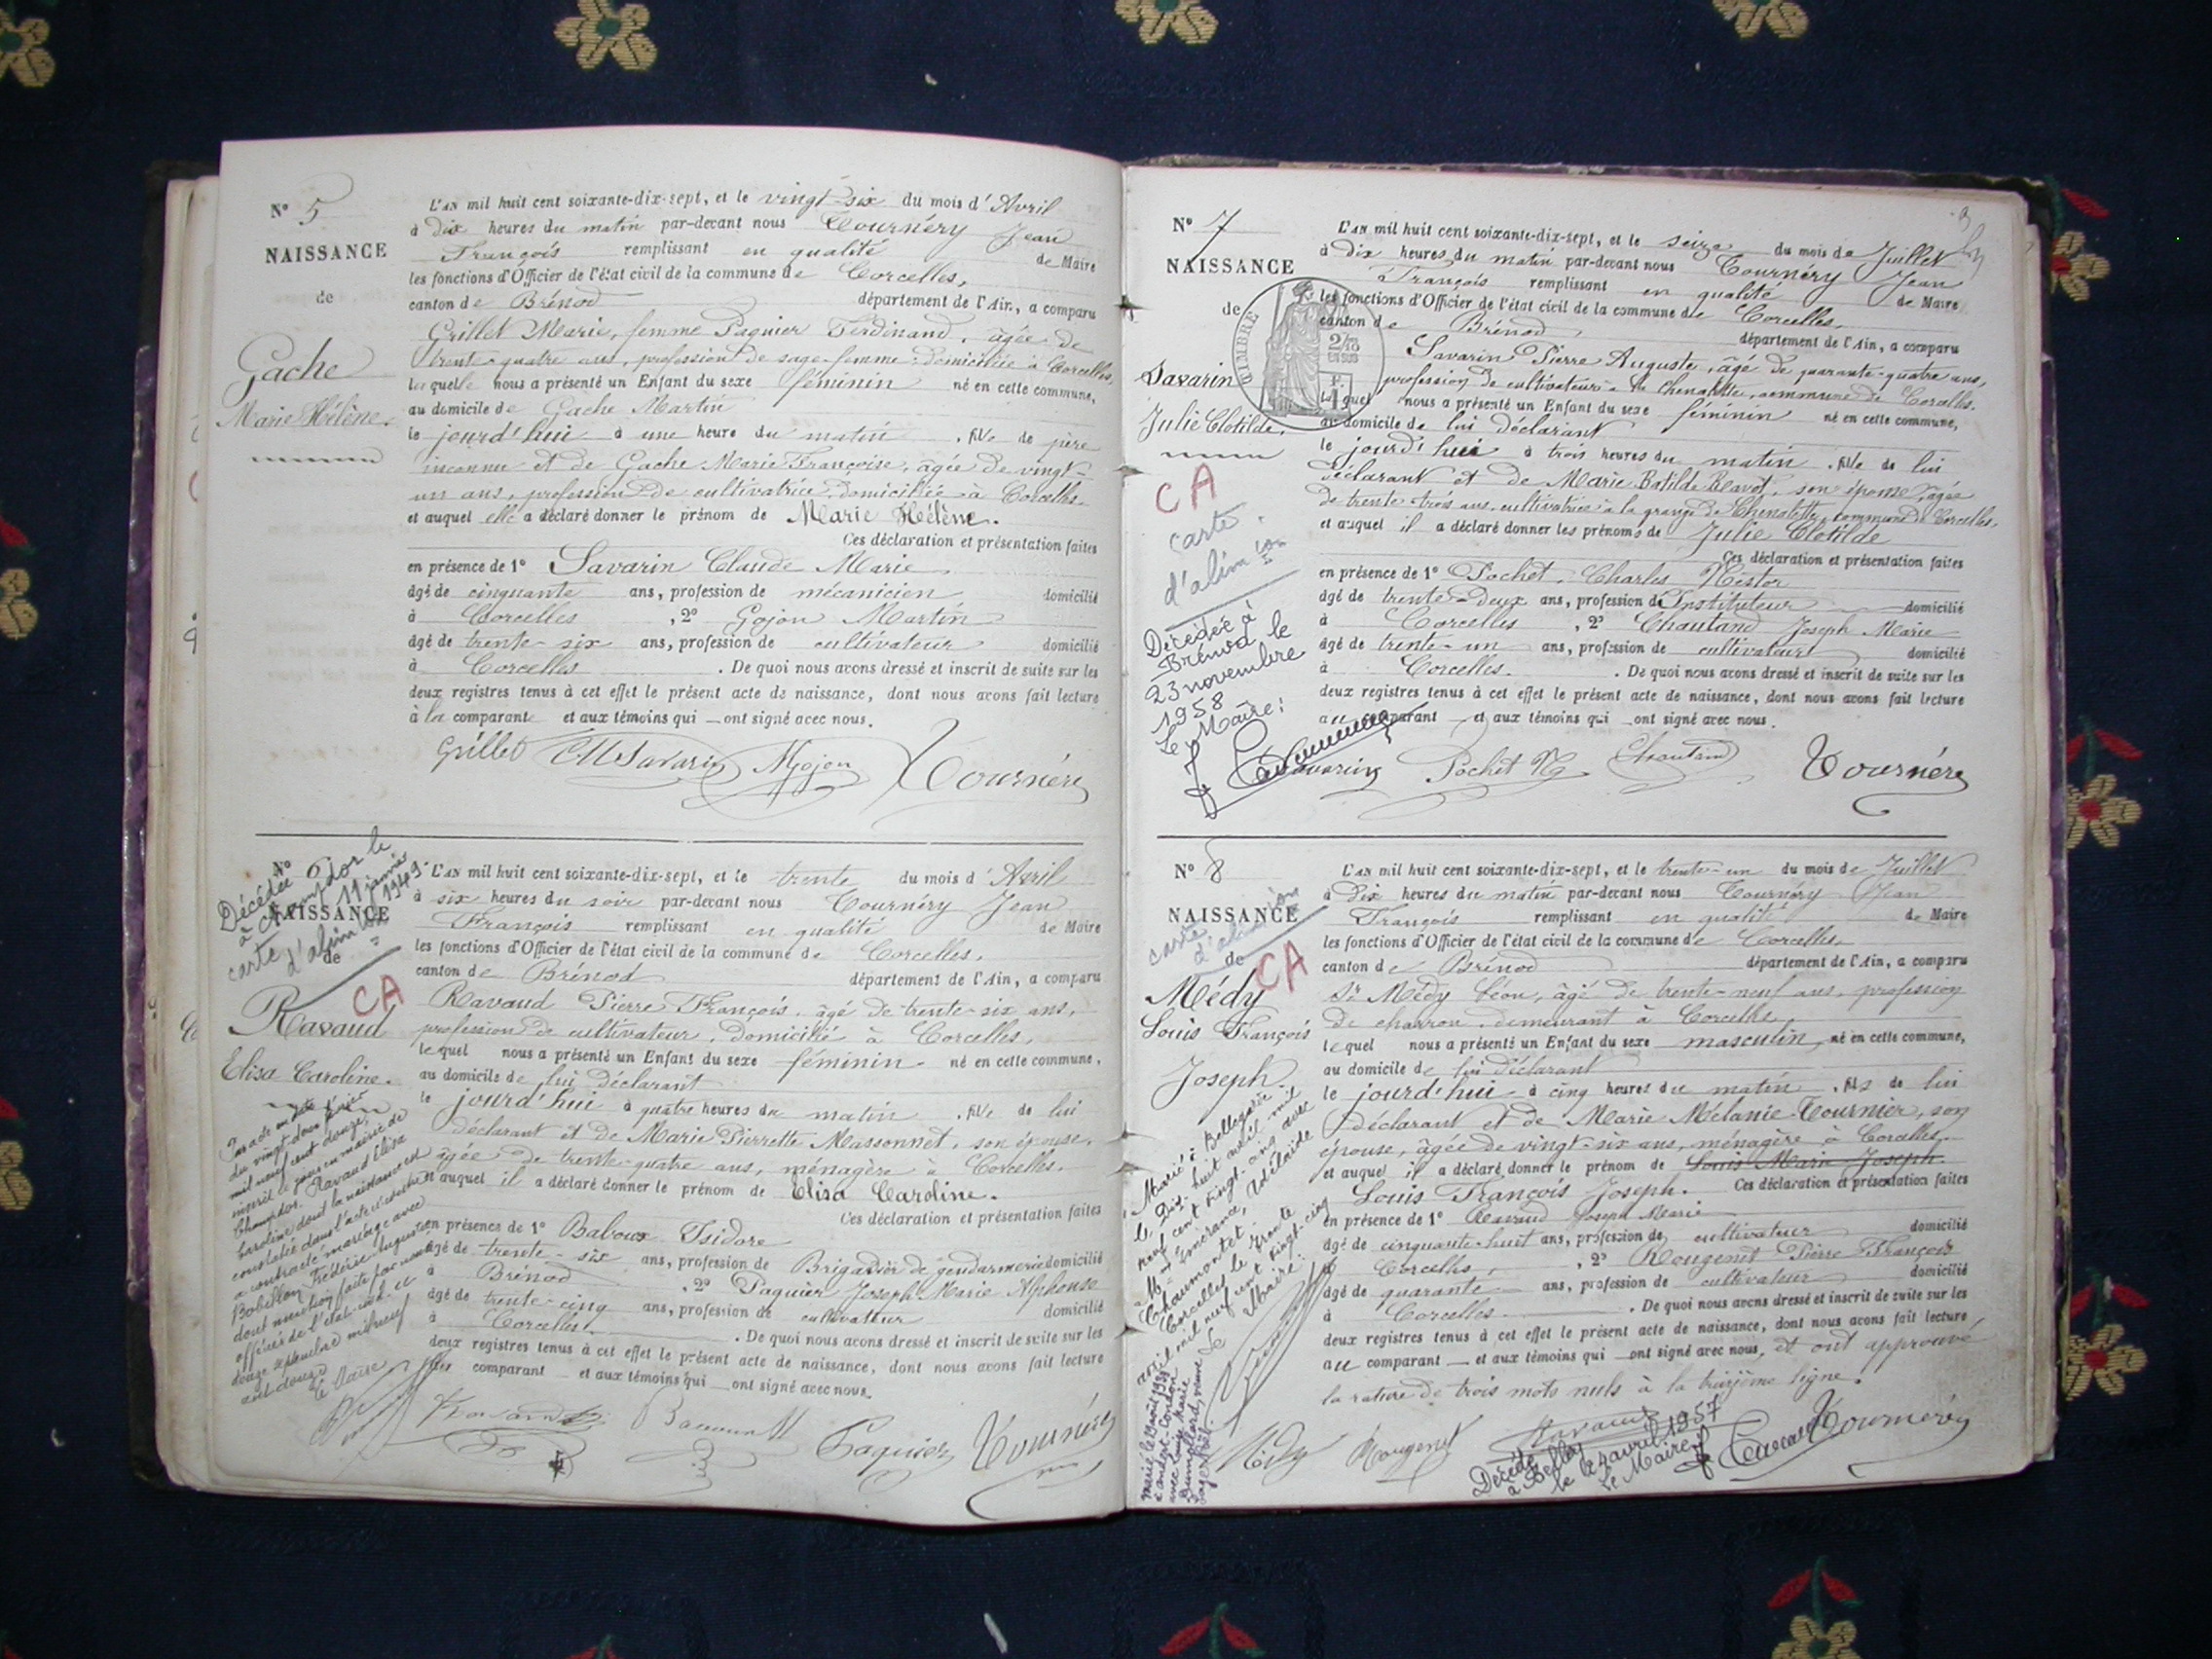 N° 5
NAISSANCE
de
Gache
Marie Hélène.
L'AN mil huit cent soixante-dix-sept, et le vingt-six du mois d'Avril
à dix heures du matin par-devant nous Tournéry Jean
François remplissant en qualité de Maire
les fonctions d'Officier de l'état civil de la commune de Corcelles,
canton de Brénod département de l'Ain, a comparu
Grillet Marie, femme Paquier Ferdinand, âgée de
trente-quatre ans, profession de sage-femme domiciliée à Corcelles,
laquelle nous a présenté un Enfant du sexe féminin né en cette commune,
au domicile de Gache Martin
le jourd'hui à une heure du matin, fille de père
inconnu et de Gache Marie Françoise, âgée de vingt-
un ans, profession de cultivatrice, domiciliée à Corcelles.
et auquel elle a déclaré donner le prénom de Marie Hélène.
Ces déclaration et présentation faites
en présence de 1° Savarin Claude Marie,
âgé de cinquante ans, profession de mécanicien domicilié
à Corcelles, 2° Gojon Martin
âgé de trente-six ans, profession de cultivateur domicilié
à Corcelles. De quoi nous avons dressé et inscrit de suite sur les
deux registres tenus à cet effet le présent acte de naissance, dont nous avons fait lecture
à la comparante et aux témoins qui ont signé avec nous.
Grillet CM Savarin MGojon Tournéry
N° 6
NAISSANCE
de
Décédée
à Champdor le
11 janvier
1949
carte
d'alim ion
CA
Ravaud
Elisa Caroline.
L'AN mil huit cent soixante-dix-sept, et le trente du mois d'Avril
à six heures du soir par-devant nous Tournéry Jean
François remplissant en qualité de Maire
les fonctions d'Officier de l'état civil de la commune de Corcelles,
canton de Brénod département de l'Ain, a comparu
Ravaud Pierre François, âgé de trente-six ans,
profession de cultivateur, domicilié à Corcelles,
lequel nous a présenté un Enfant du sexe féminin né en cette commune,
au domicile de lui déclarant
le jourd'hui à quatre heures du matin, fille de lui
déclarant et de Marie Pierrette Massonnet, son épouse,
âgée de trente-quatre ans, ménagère à Corcelles.
et auquel il a déclaré donner le prénom de Elisa Caroline.
Ces déclaration et présentation faites
en présence de 1° Baboux Isidore
âgé de trente-six ans, profession de Brigadier de gendarmerie domicilié
à Brénod, 2° Paquier Joseph Marie Alphonse
âgé de trente-cinq ans, profession de cultivateur domicilié
à Corcelles. De quoi nous avons dressé et inscrit de suite sur les
deux registres tenus à cet effet le présent acte de naissance, dont nous avons fait lecture
au comparant et aux témoins qui ont signé avec nous.
Par acte en date
du vingt-deux
mil neuf cent douze,
inscrit le jour en mairie de
Champdor. Ravaud Elisa
Caroline dont la naissance est
constatée dans l'acte
a contracté mariage avec
Bobillon Frédéric Auguste
dont mention faite par nous
officier de l'état-civil
douze septembre mil neuf
cent douze
Le Maire
Ravaud Paquier Tournéry
N° 7
NAISSANCE
de
TIMBRE
Savarin
Julie Clotilde.
CA
carte
d'alim ion
Décédée à
Brénod le
23 novembre
1958
Le Maire:
L'AN mil huit cent soixante-dix-sept, et le seize du mois de Juillet
à dix heures du matin par-devant nous Tournéry Jean
François remplissant en qualité de Maire
les fonctions d'Officier de l'état civil de la commune de Corcelles,
canton de Brénod, département de l'Ain, a comparu
Savarin Pierre Auguste, âgé de quarante-quatre ans,
profession de cultivateur à la Chenalette, commune de Corcelles.
lequel nous a présenté un Enfant du sexe féminin né en cette commune,
au domicile de lui déclarant
le jourd'hui à trois heures du matin, fille de lui
déclarant et de Marie Batilde Blavot, son épouse, âgée
de trente-trois ans, cultivatrice à la grange de Chenalette, commune de Corcelles,
et auquel il a déclaré donner les prénoms de Julie Clotilde
Ces déclaration et présentation faites
en présence de 1° Pochet, Charles Nestor
âgé de trente-deux ans, profession d'Instituteur domicilié
à Corcelles, 2° Chautand Joseph Marie
âgé de trente-un ans, profession de cultivateur domicilié
à Corcelles. De quoi nous avons dressé et inscrit de suite sur les
deux registres tenus à cet effet le présent acte de naissance, dont nous avons fait lecture
au comparant et aux témoins qui ont signé avec nous.
Savarin Pochet N Chautand Tournéry
N° 8
NAISSANCE
de
carte
d'alim ion
CA
Médy
Louis François
Joseph.
L'AN mil huit cent soixante-dix-sept, et le trente-un du mois de Juillet
à dix heures du matin par-devant nous Tournéry Jean
François remplissant en qualité de Maire
les fonctions d'Officier de l'état civil de la commune de Corcelles,
canton de Brénod département de l'Ain, a comparu
Sr Médy Léon, âgé de trente-neuf ans, profession
de charron, demeurant à Corcelles,
lequel nous a présenté un Enfant du sexe masculin, né en cette commune,
au domicile de lui déclarant
le jourd'hui à cinq heures du matin, fils de lui
déclarant et de Marie Mélanie Tournier, son
épouse, âgée de vingt-six ans, ménagère à Corcelles.
et auquel il a déclaré donner le prénom de Louis Marie Joseph.
Louis François Joseph. Ces déclaration et présentation faites
en présence de 1° Ravaud Joseph Marie
âgé de cinquante-huit ans, profession de cultivateur domicilié
à Corcelles, 2° Rougemet Pierre François
âgé de quarante ans, profession de cultivateur domicilié
à Corcelles. De quoi nous avons dressé et inscrit de suite sur les
deux registres tenus à cet effet le présent acte de naissance, dont nous avons fait lecture
au comparant et aux témoins qui ont signé avec nous, et ont approuvé
la rature de trois mots nuls à la treizième ligne.
Marié à Bellegarde
le dix-huit avril mil
neuf cent vingt-cinq avec
Emérance, Adélaïde
Chaumontet
Corcelles le trente
avril mil neuf cent vingt-cinq
Le Maire:
Médy Rougemet Ravaud Tournéry
Décédé
à Belley
le 12 avril 1957
Le Maire